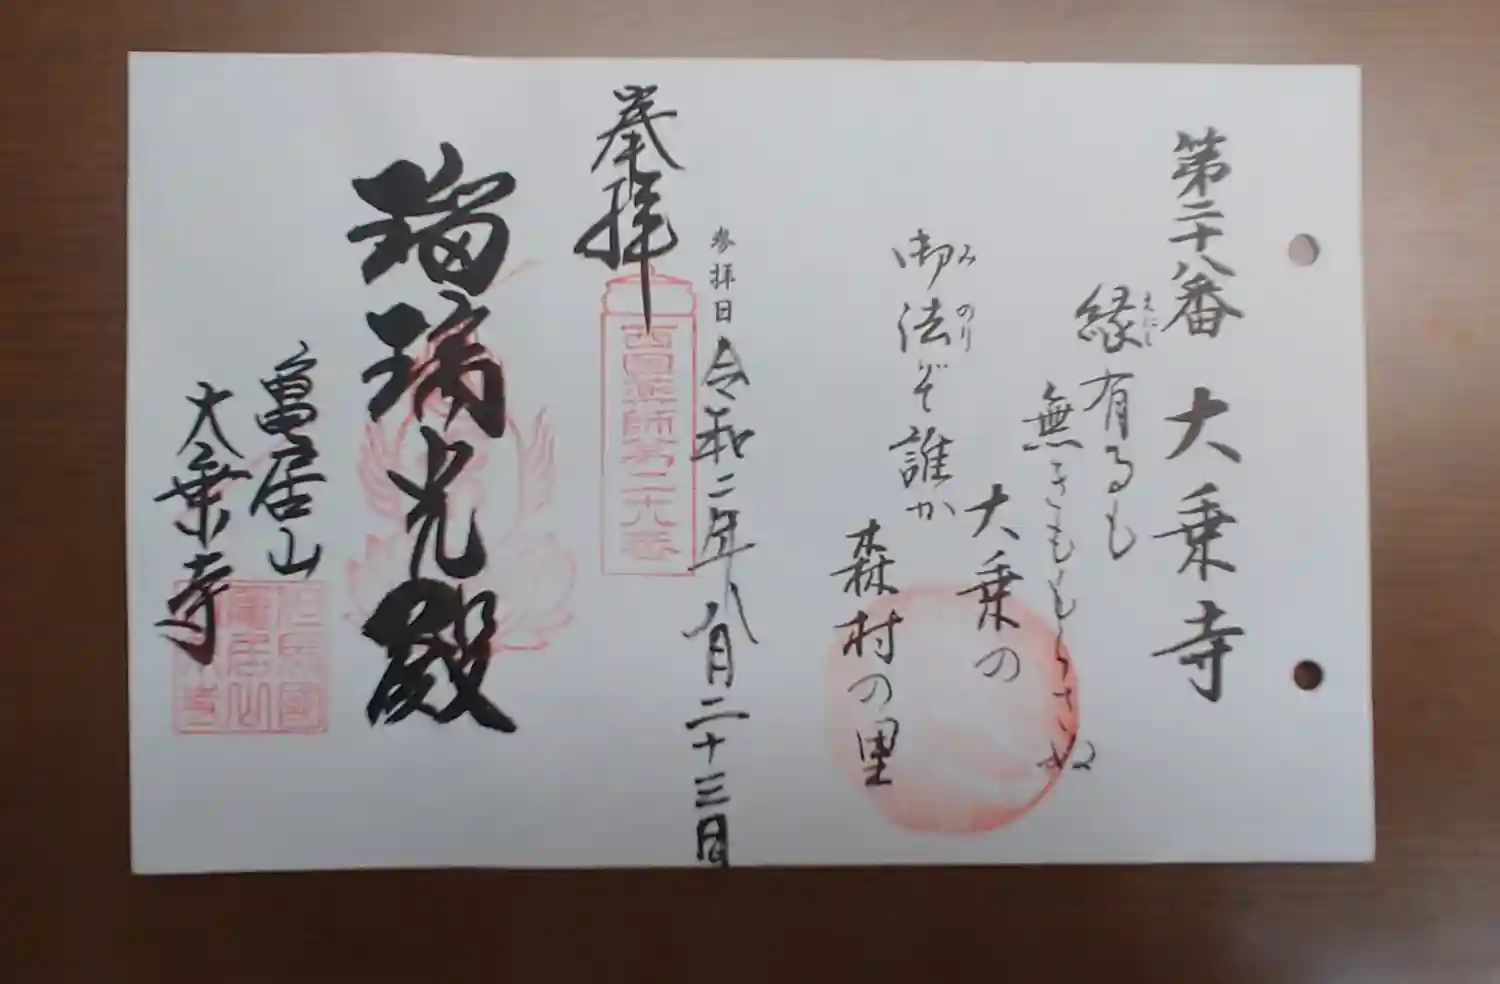 第二十八番 大乗寺
縁有るも
えにし
無きももらさぬ
大乗の
御法ぞ誰か
みのり
森村の里
参拝日 令和二年八月二十三日
奉拝
西国薬師第二十八番
瑠璃光殿
亀居山
大乗寺